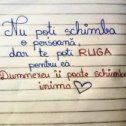 Nu poți schimba
o persoană,
dar te poți RUGA
pentru ea
Dumnezeu îi poate schimba
inima